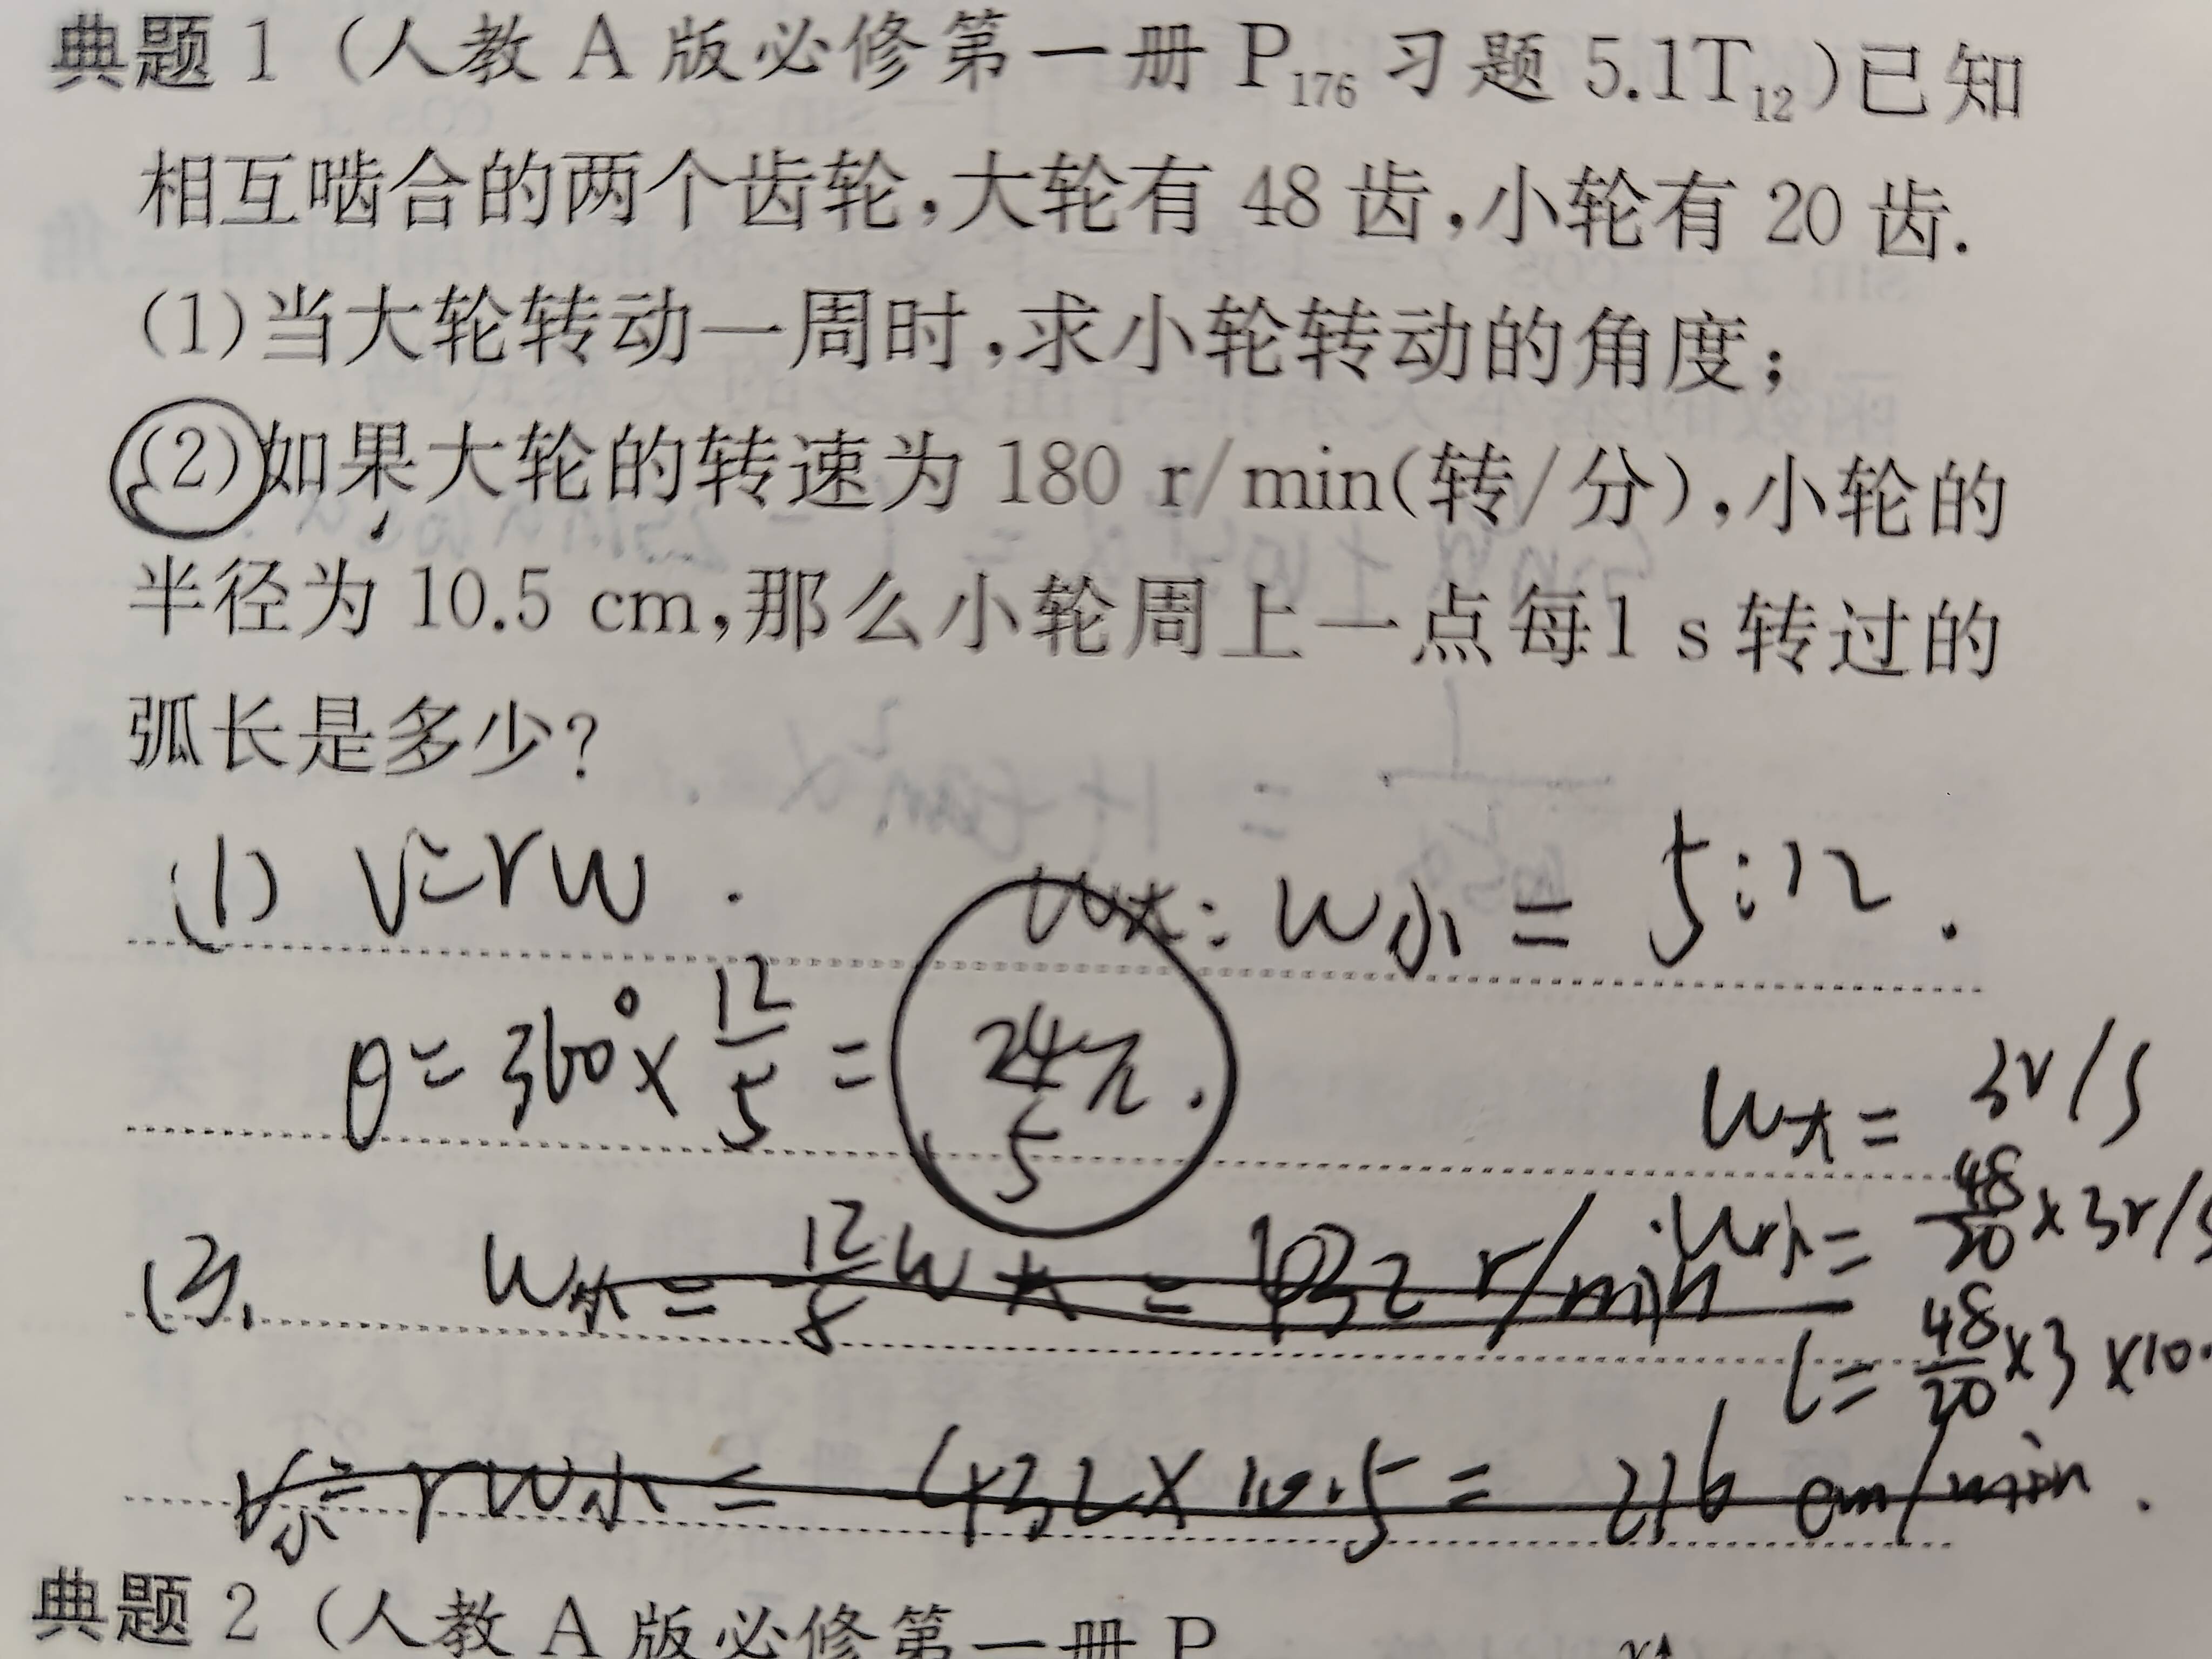 典题 1 (人教 A 版必修第一册 P₁₇₆ 习题 5.1T₁₂)已知
相互啮合的两个齿轮,大轮有 48 齿,小轮有 20 齿.
(1)当大轮转动一周时,求小轮转动的角度;
(2)如果大轮的转速为 180 r/min(转/分),小轮的
半径为 10.5 cm,那么小轮周上一点每1 s 转过的
弧长是多少?
(1) v=rw . w大: w小 = 5:12 .
θ= 360°× 12/5 = 24π/5 .
w大= 3r/s
w小= 48/20 ×3r/s
(2). w小 = 12/5 w大 = 432 r/min
l= 48/20 ×3 ×10.
v小= rw小 = 432×10.5 = 216 cm/min .
典题 2 (人教 A 版必修第一册 P